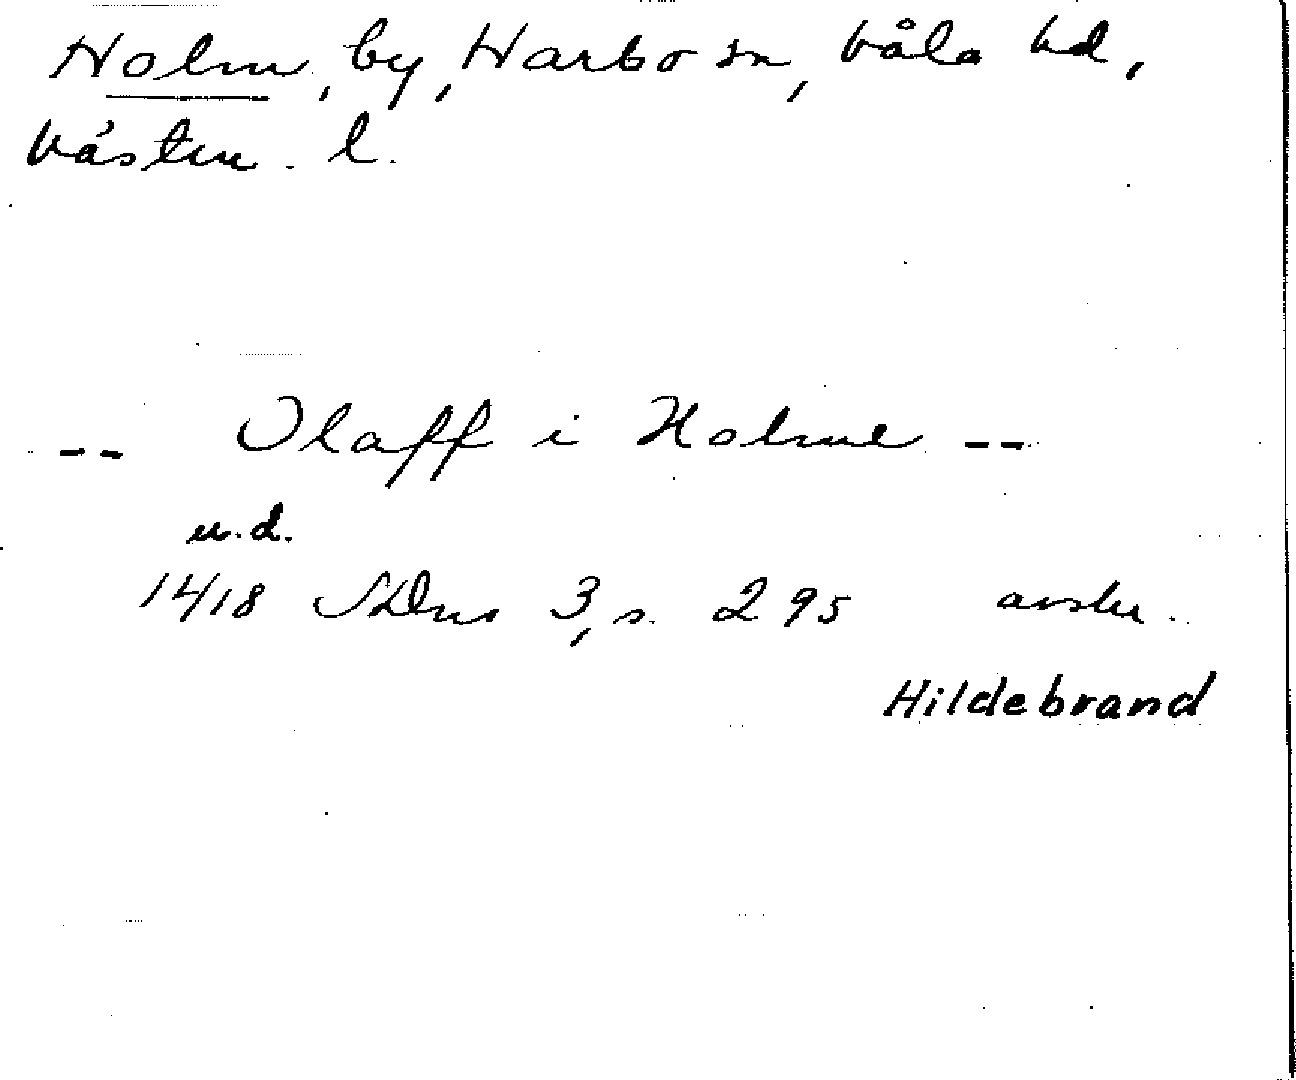 Holm, by, Harbo sn, Våla hd,
Västm. l.
-- Olaff i Holme --
u.d.
1418 SDns 3, s. 295 avskr.
Hildebrand